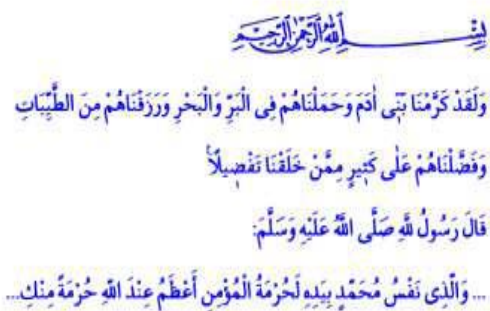 بِسْمِ اللّٰهِ الرَّحْمٰنِ الرَّحِيمِ
وَلَقَدْ كَرَّمْنَا بَنٖٓى اٰدَمَ وَحَمَلْنَاهُمْ فِى الْبَرِّ وَالْبَحْرِ وَرَزَقْنَاهُمْ مِنَ الطَّيِّبَاتِ
وَفَضَّلْنَاهُمْ عَلٰى كَثٖيرٍ مِمَّنْ خَلَقْنَا تَفْضٖيلًاࣖ
قَالَ رَسُولُ للّٰهِ صَلَّى اللّٰهُ عَلَيْهِ وَسَلَّمَ:
... وَالَّذِى نَفْسُ مُحَمَّدٍ بِيَدِهِ لَحُرْمَةُ الْمُؤْمِنِ أَعْظَمُ عِنْدَ اللّٰهِ حُرْمَةً مِنْكِ...